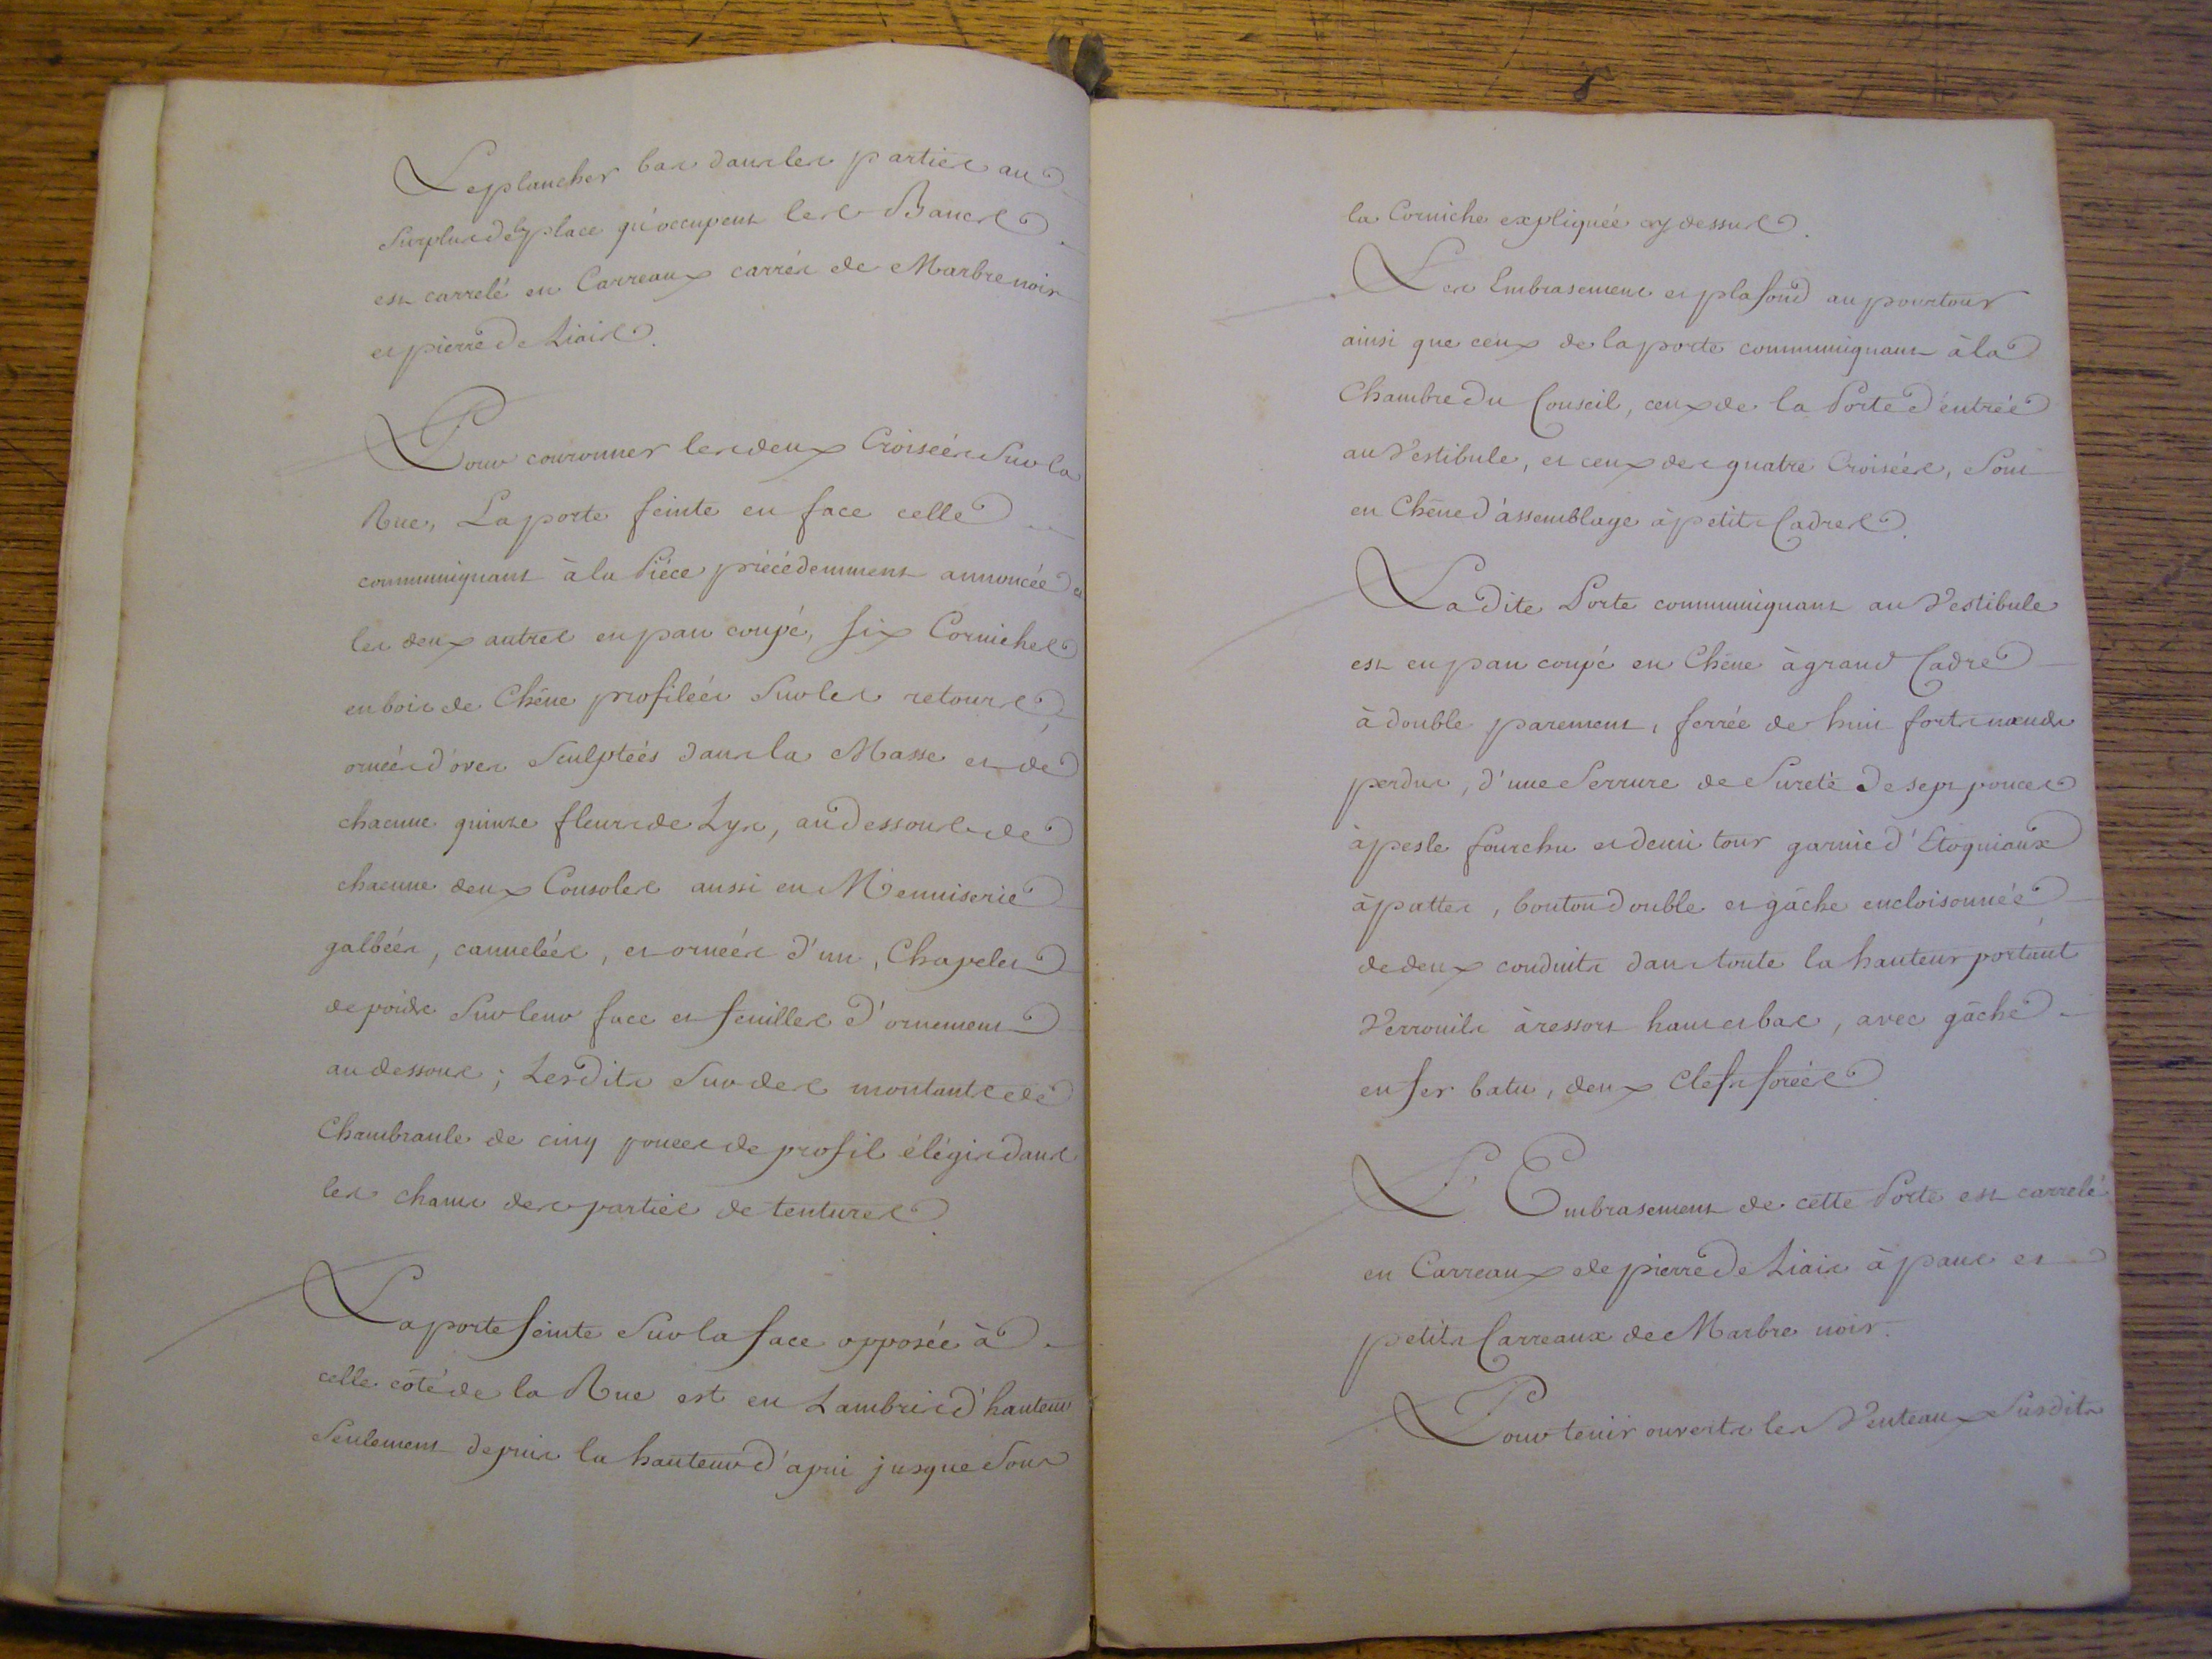 Le plancher bas dans les parties au
Surplus des place qu'occupent les Bancs
est carrelé en Carreaux carrés de Marbre noir
et pierre de Liais.
Pour couronner les deux Croisées Sur la
Rue, La porte feinte en face celle
communiquant à la Piéce précédemment annoncée et
les deux autres en pan coupé, six Corniches
en bois de Chêne profilées Sur les retours
ornées d'oves Sculptées dans la Masse et de
chacune quinze fleurs de Lys, au dessous de
chacune deux Consoles aussi en Menuiserie
galbées, cannelées, et ornées d'un, Chapelet
de poids Sur leur face et feuilles d'ornement
au dessous ; Lesdits Sur des montants de
Chambranle de cinq pouces de profil élégis dans
les champs des parties de tentures.
La porte feinte Sur la face opposée à
celle côté de la Rue est en Lambris d'hauteur
Seulement depuis la hauteur d'apui jusque Sous
la Corniche expliquée cy dessus.
Les Embrasemens et plafond au pourtour
ainsi que ceux de la porte communiquant à la
Chambre du Conseil, ceux de la Porte d'entrée
au Vestibule, et ceux des quatre Croisées, Sont
en Chêne d'assemblage à petits Cadres.
La dite Porte communiquant au Vestibule
est en pan coupé en Chêne à grand Cadre
à double parement, ferrée de huit forts nœuds
perdus, d'une Serrure de Sureté de sept pouces
à pesle fourchu et demi tour garnie d'Etoquiaux
à pattes, bouton double et gâche encloisonnée
de deux conduits dans toute la hauteur portant
Verrouils à ressort haut et bas, avec gâche
en fer batu, deux Clefs forées.
L'Embrasement de cette Porte est carrelé
en Carreaux de pierre de Liais à pans et
petits Carreaux de Marbre noir.
Pour tenir ouverts les Venteaux Susdits